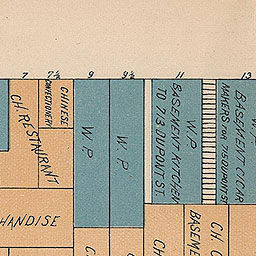 7
7½
9
9½
11
13
CH. RESTAURANT
CONFECTIONERY
CHINESE
W. P.
W. P.
W. P.
BASEMENT KITCHEN
TO 713 DUPONT ST.
W. P.
BASEMENT CIGAR
MAKERS FOR 715 DUPONT ST.
HANDISE
C
CH
BASEME
CH. C